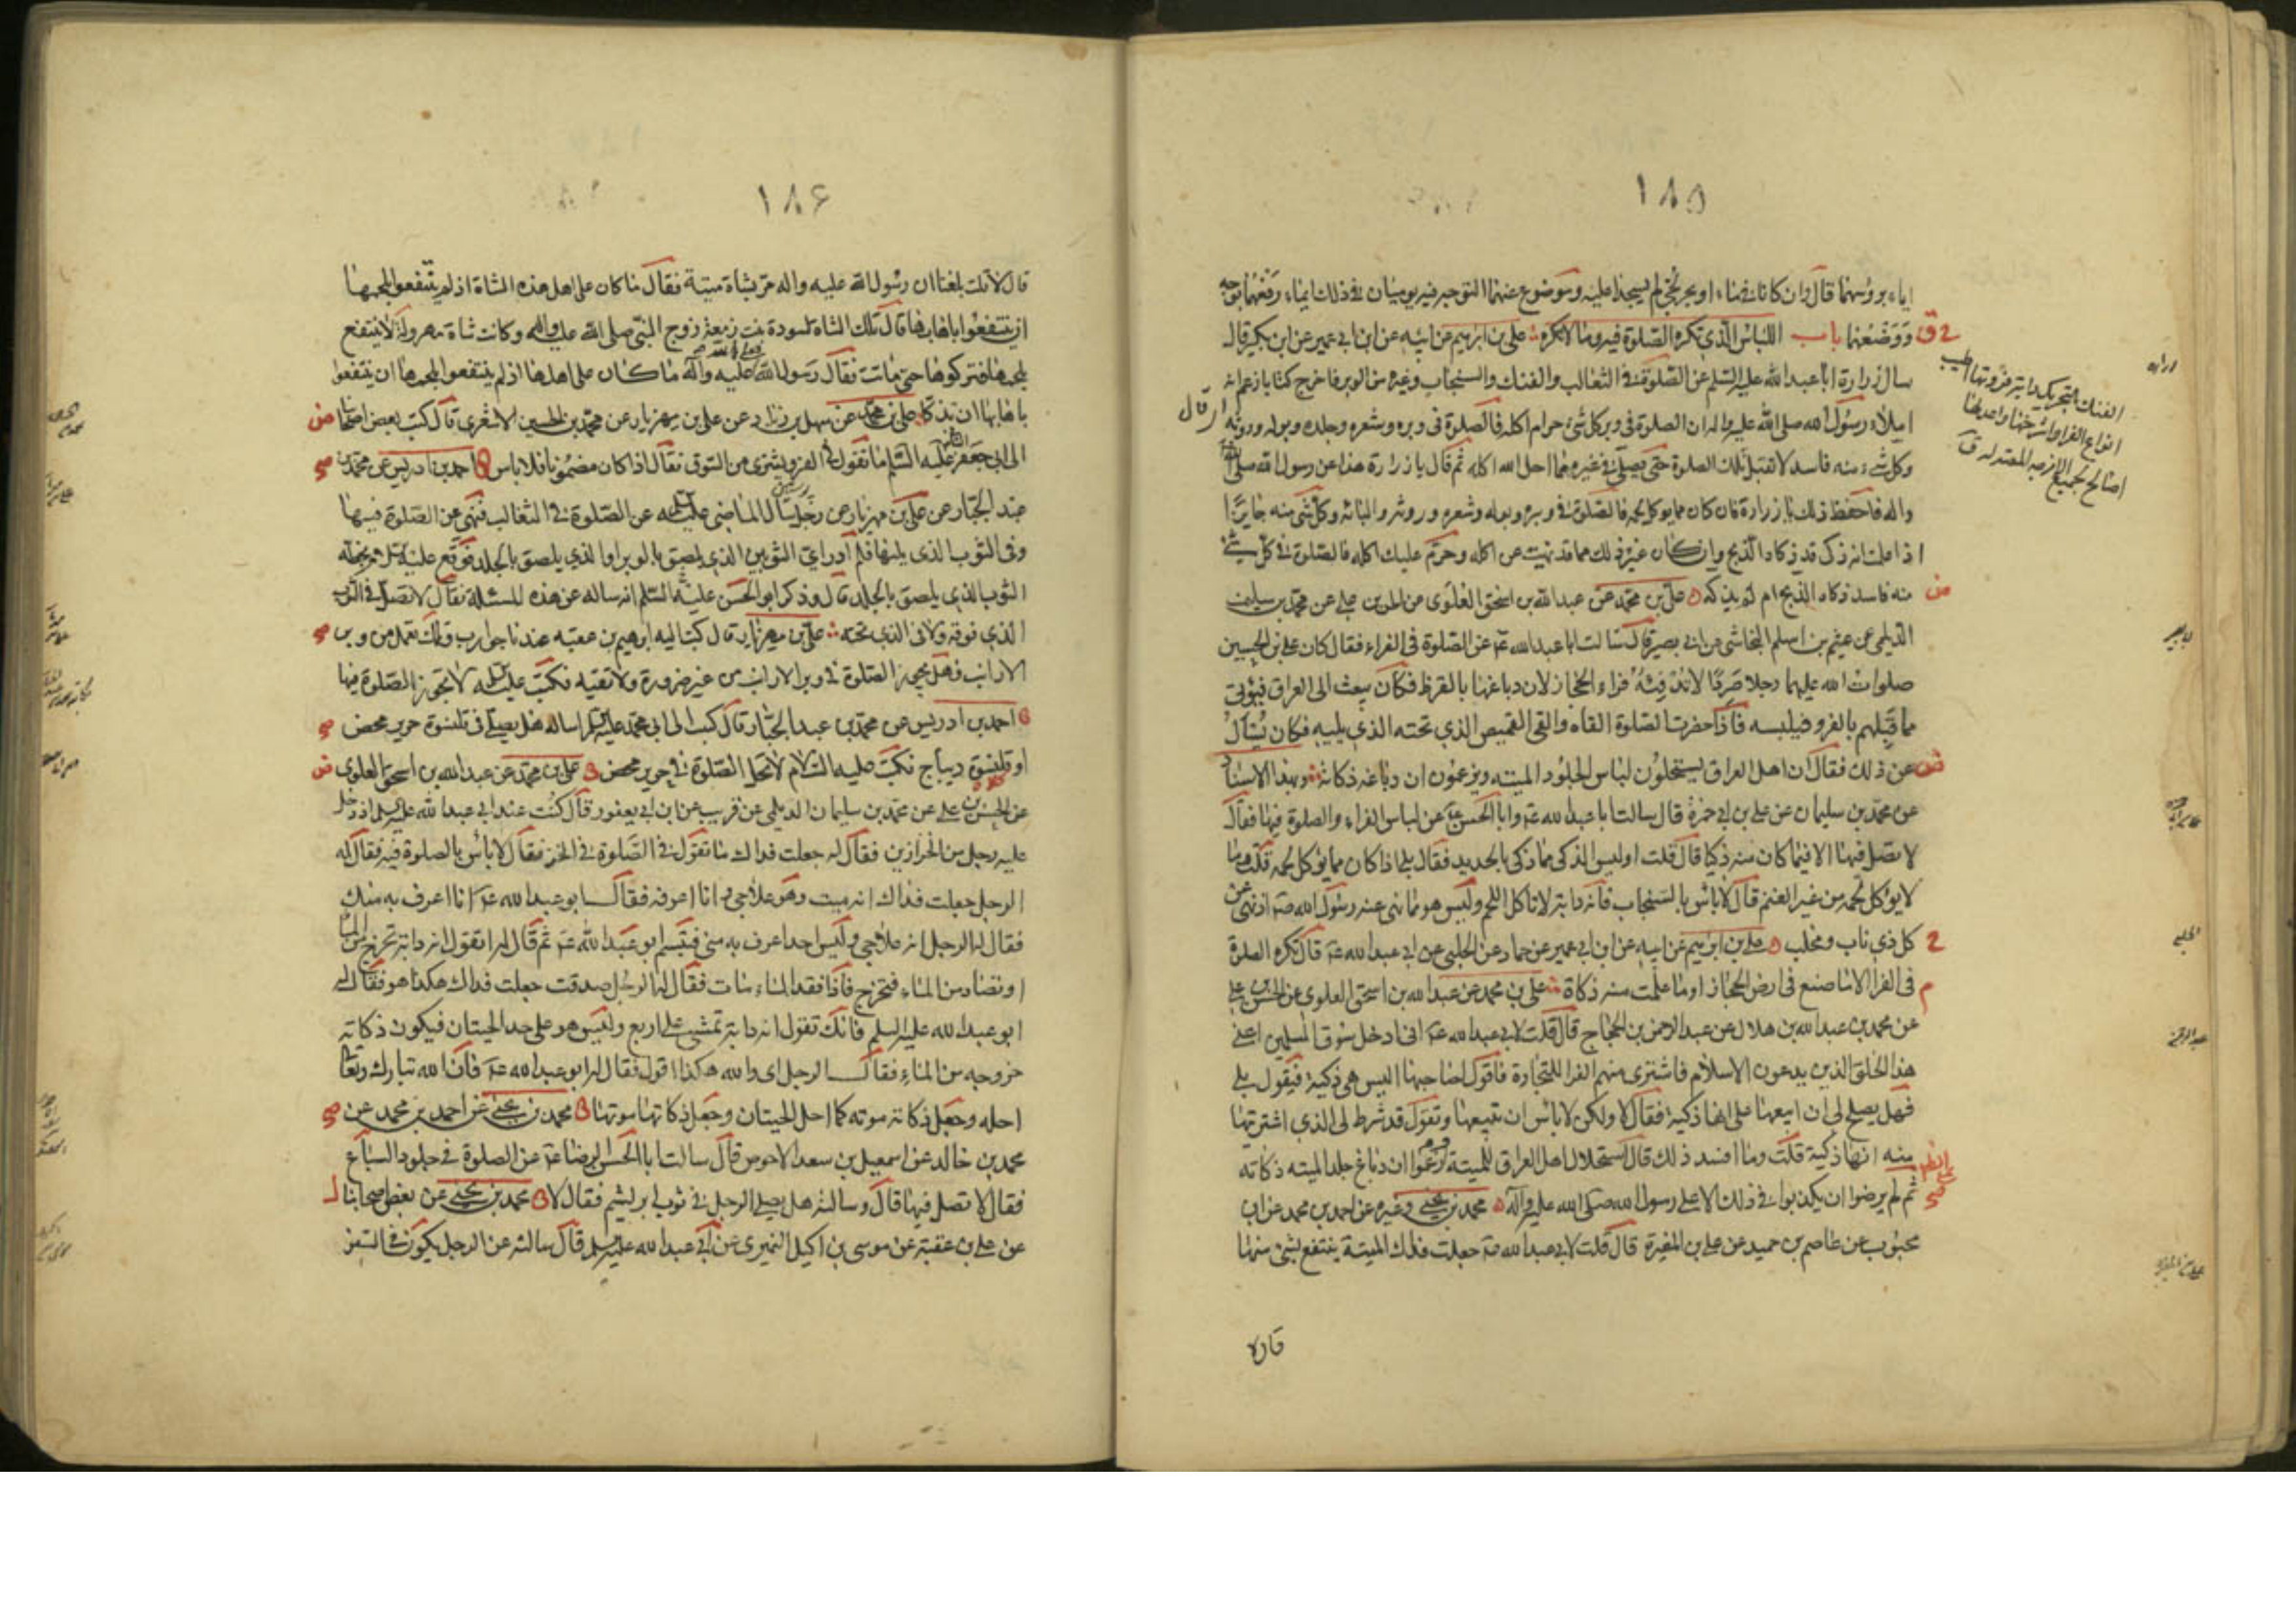 ١٨٥
ايماء برؤسهما قال وان كانا في ماء او بحر لجي لم يسجدا عليه وموضوع عنهما التوجه فيه يوميان في ذلك ايماء رفعهما توجه
ووضعهما باب اللباس الذي تكره الصلوة فيه وما لا تكره علي بن ابرهيم عن ابيه عن ابن ابي عمير عن ابن بكير قال
سال زرارة ابا عبد الله عليه السلم عن الصلوة في الثعالب والفنك والسنجاب وغيره من الوبر فاخرج كتابا زعم انه
املاء رسول الله صلى الله عليه واله ان الصلوة في وبر كل شيء حرام اكله فالصلوة في وبره وشعره وجلده وبوله وروثه
وكل شيء منه فاسد لا تقبل تلك الصلوة حتى يصلى في غيره مما احل الله اكله ثم قال يا زرارة هذا عن رسول الله صلى الله
واله فاحفظ ذلك يا زرارة فان كان مما يوكل لحمه فالصلوة في وبره وبوله وشعره وروثه والبانه وكل شي منه جايزة
اذا علمت انه ذكي قد ذكاه الذبح وان كان غير ذلك مما قد نهيت عن اكله وحرم عليك اكله فالصلوة في كل شيء
منه فاسد ذكاه الذبح ام لم يذكه علي بن محمد عن عبد الله بن اسحق العلوي عن الحسن بن علي عن محمد بن سليمن
الديلمي عن عيثم بن اسلم النجاشي عن ابي بصير قال سالت ابا عبد الله ع عن الصلوة في الفراء فقال كان علي بن الحسين
صلوات الله عليهما رجلا صردا لا تدفئه فراء الحجاز لان دباغها بالقرظ فكان يبعث الى العراق فيوتى
مما قبلهم بالفرو فيلبسه فاذا حضرت الصلوة القاه والقى القميص الذي تحته الذي يليه فكان يسأل
عن ذلك فقال ان اهل العراق يستحلون لباس الجلود الميته ويزعمون ان دباغه ذكاته وبهذا الاسناد
عن محمد بن سليمان عن علي بن ابي حمزة قال سالت ابا عبد الله ع وابا الحسن ع عن لباس الفراء والصلوة فيها فقال
لا تصل فيها الا فيما كان منه ذكيا قال قلت اوليس الذكي مما ذكي بالحديد فقال بلى اذا كان مما يوكل لحمه قلت وما
لا يؤكل لحمه من غير الغنم قال لا باس بالسنجاب فانه دابة لا تاكل اللحم وليس هو مما نهى عنه رسول الله ص اذ نهى عن
كل ذي ناب ومخلب علي بن ابرهيم عن ابيه عن ابن ابي عمير عن حماد عن الحلبي عن ابي عبد الله ع قال تكره الصلوة
في الفرا الا ما صنع في ارض الحجاز او ما علمت منه ذكاة علي بن محمد عن عبد الله بن اسحق العلوي عن الحسن بن علي
عن محمد بن عبد الله بن هلال عن عبد الرحمن بن الحجاج قال قلت لابي عبد الله ع اني ادخل سوق المسلمين اعني
هذا الخلق الذين يدعون الاسلام فاشترى منهم الفرا للتجارة فاقول لصاحبها اليس هي ذكية فيقول بلى
فهل يصلح لي ان ابيعها على انها ذكية فقال لا ولكن لا باس ان تبيعها وتقول قد شرط لي الذي اشتريتها
منه انها ذكية قلت وما افسد ذلك قال استحلال اهل العراق للميتة وزعموا ان دباغ جلد الميته ذكاته
ثم لم يرضوا ان يكذبوا في ذلك الا على رسول الله صلى الله عليه وآله محمد بن يحيى وغيره عن احمد بن محمد عن ابن
محبوب عن عاصم بن حميد عن علي بن المغيرة قال قلت لابي عبد الله ع جعلت فداك الميتة ينتفع بشئ منها
قال لا
١٨٦
قال لا قلت بلغنا ان رسول الله عليه واله مر بشاة ميتة فقال ما كان على اهل هذه الشاة اذ لم ينتفعوا بلحمها
ان ينتفعوا باهابها قال تلك الشاة لسودة بنت زمعة زوج النبي صلى الله عليه واله وكانت شاة مهزولة لا ينتفع
بلحمها فتركوها حتى ماتت فقال رسول الله عليه وآله ما كان على اهلها اذ لم ينتفعوا بلحمها ان ينتفعوا
باهابها ان تذكا علي بن محمد عن سهل بن زياد عن علي بن مهزيار عن محمد بن الحسين الاشعري قال كتب بعض اصحابنا
الى ابي جعفر الثاني عليه السلم ما تقول في الفرو يشترى من السوق فقال اذا كان مضمونا فلا باس احمد بن ادريس عن محمد بن
عبد الجبار عن علي بن مهزيار عن رجل سال الماضي عليه السلم عن الصلوة في الثعالب فنهى عن الصلوة فيها
وفي الثوب الذي يليها فلم ادر اي الثوبين الذي يلصق بالوبر او الذي يلصق بالجلد فوقع عليه السلم بخطه
الثوب الذي يلصق بالجلد قال وذكر ابو الحسن عليه السلم انه ساله عن هذه المسئلة فقال لا تصل في الثوب
الذي فوقه ولا في الذي تحته علي بن مهزيار قال كتب اليه ابرهيم بن عقبه عندنا جوارب وتكك تعمل من وبر
الارانب فهل تجوز الصلوة في وبر الارانب من غير ضرورة ولا تقيه فكتب عليه السلم لا تجوز الصلوة فيها
احمد بن ادريس عن محمد بن عبد الجبار قال كتبت الى ابي محمد عليه السلم اساله هل يصلي في قلنسوة حرير محض
او قلنسوة ديباج فكتب عليه السلام لا تحل الصلوة في حرير محض علي بن محمد عن عبد الله بن اسحق العلوي
عن الحسن بن علي عن محمد بن سليمان الديلمي عن قريب عن ابن ابي يعفور قال كنت عند ابي عبد الله عليه السلم اذ دخل
عليه رجل من الخزازين فقال له جعلت فداك ما تقول في الصلوة في الخز فقال لا بأس بالصلوة فيه فقال له
الرجل جعلت فداك انه ميت وهو علاجي وانا اعرفه فقال ابو عبد الله ع انا اعرف به منك
فقال له الرجل انه علاجي وليس احد اعرف به مني فتبسم ابو عبد الله ع ثم قال له اتقول انه دابة تخرج من الماء
او تصاد من الماء فتخرج فاذا فقد الماء مات فقال له الرجل صدقت جعلت فداك هكذا هو فقال له
ابو عبد الله عليه السلم فانك تقول انه دابة تمشي على اربع وليس هو على حد الحيتان فيكون ذكاته
خروجه من الماء فقال الرجل اي والله هكذا اقول فقال له ابو عبد الله ع فان الله تبارك وتعالى
احله وجعل ذكاته موته كما احل الحيتان وجعل ذكاتها موتها محمد بن يحيى عن احمد بن محمد عن
محمد بن خالد عن اسمعيل بن سعد الاحوص قال سالت ابا الحسن الرضا ع عن الصلوة في جلود السباع
فقال لا تصل فيها قال وسالته هل يصلي الرجل في ثوب ابريشم فقال لا محمد بن يحيى عن بعض اصحابنا
عن علي بن عقبة عن موسى بن اكيل النميري عن ابي عبد الله عليه السلم قال سالته عن الرجل يكون في السفر